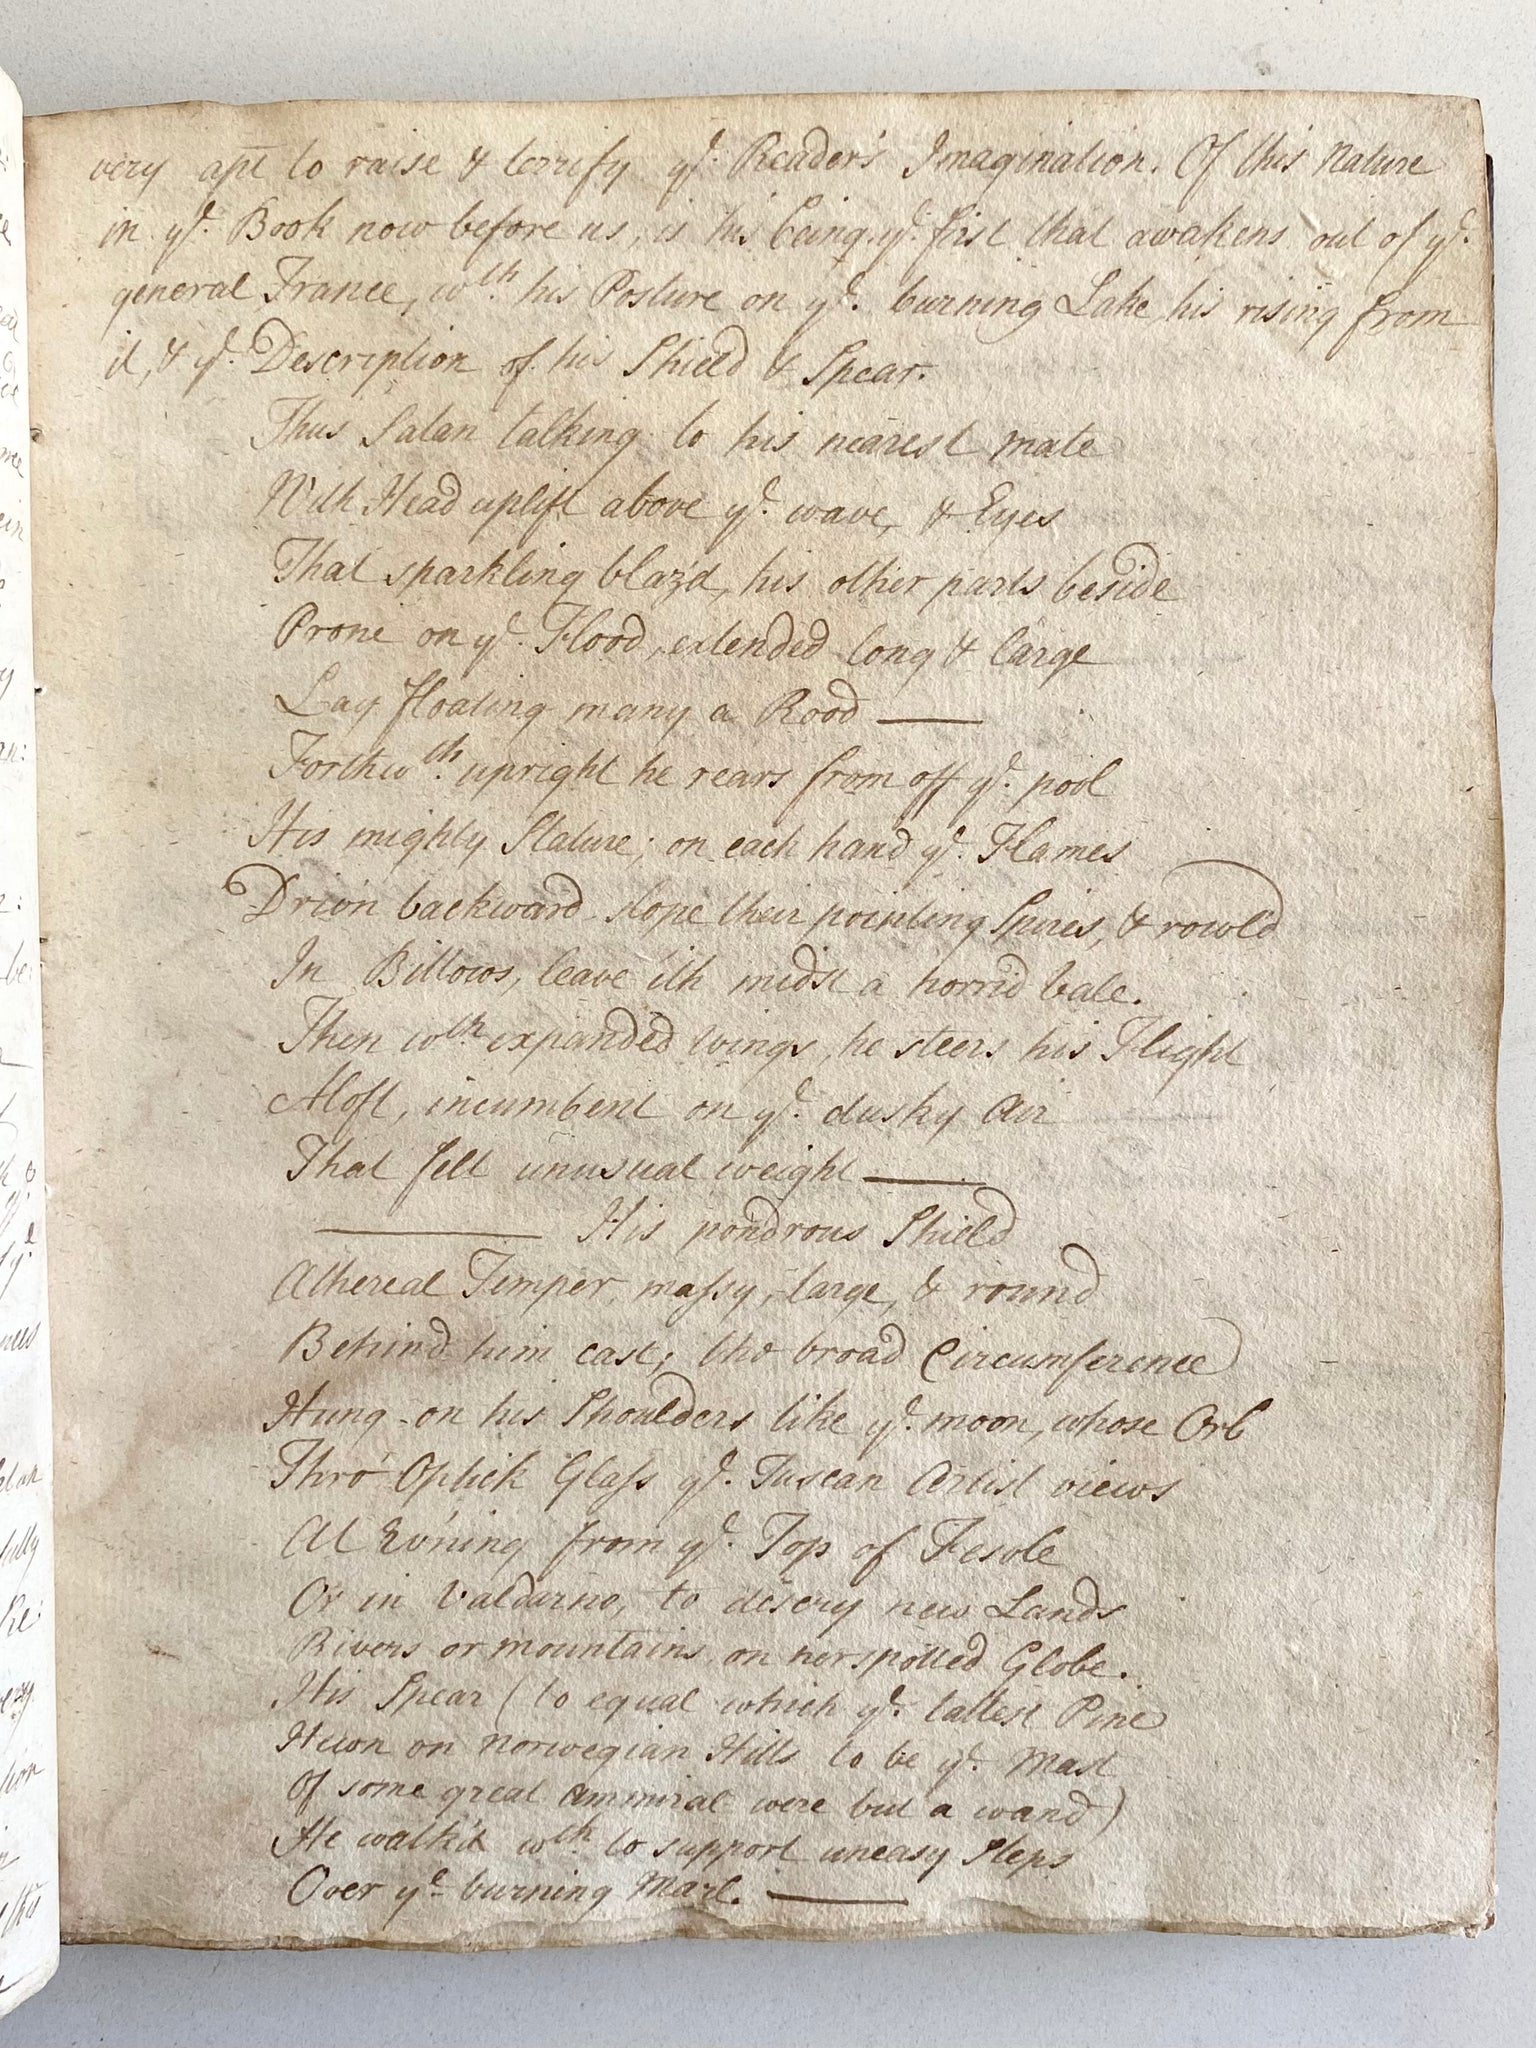 very apt to raise & terrify ye. Reader's Imagination. Of this Nature
in ye. Book now before us, is his being ye. first that awakens out of ye.
general Trance, wth. his Posture on ye. burning Lake, his rising from
it, & ye. Description of his Shield & Spear.
Thus Satan talking to his nearest mate
With Head uplift above ye. wave, & Eyes
That sparkling blaz'd, his other parts beside
Prone on ye. Flood, extended long & large
Lay floating many a Rood ——
Forthwth. upright he rears from off ye. pool
His mighty Stature; on each hand ye. Flames
Driv'n backward slope their pointing Spires, & rowl'd
In Billows, leave i'th midst a horrid vale.
Then wth. expanded wings, he steers his Flight
Aloft, incumbent on ye. dusky Air
That felt unusual weight ——
—— His pondrous Shield
Athereal Temper, massy, large, & round
Behind him cast; the broad Circumference
Hung on his Shoulders like ye. moon, whose Orb
Thro' Optick Glass ye. Tuscan Artist views
At Ev'ning from ye. Top of Fesole
Or in Valdarno, to descry new Lands
Rivers or mountains on her spotted Globe.
His Spear (to equal which ye. tallest Pine
Hewn on Norwegian Hills to be ye. Mast
Of some great Ammiral were but a wand)
He walk'd wth. to support uneasy Steps
Over ye burning Marl. ——